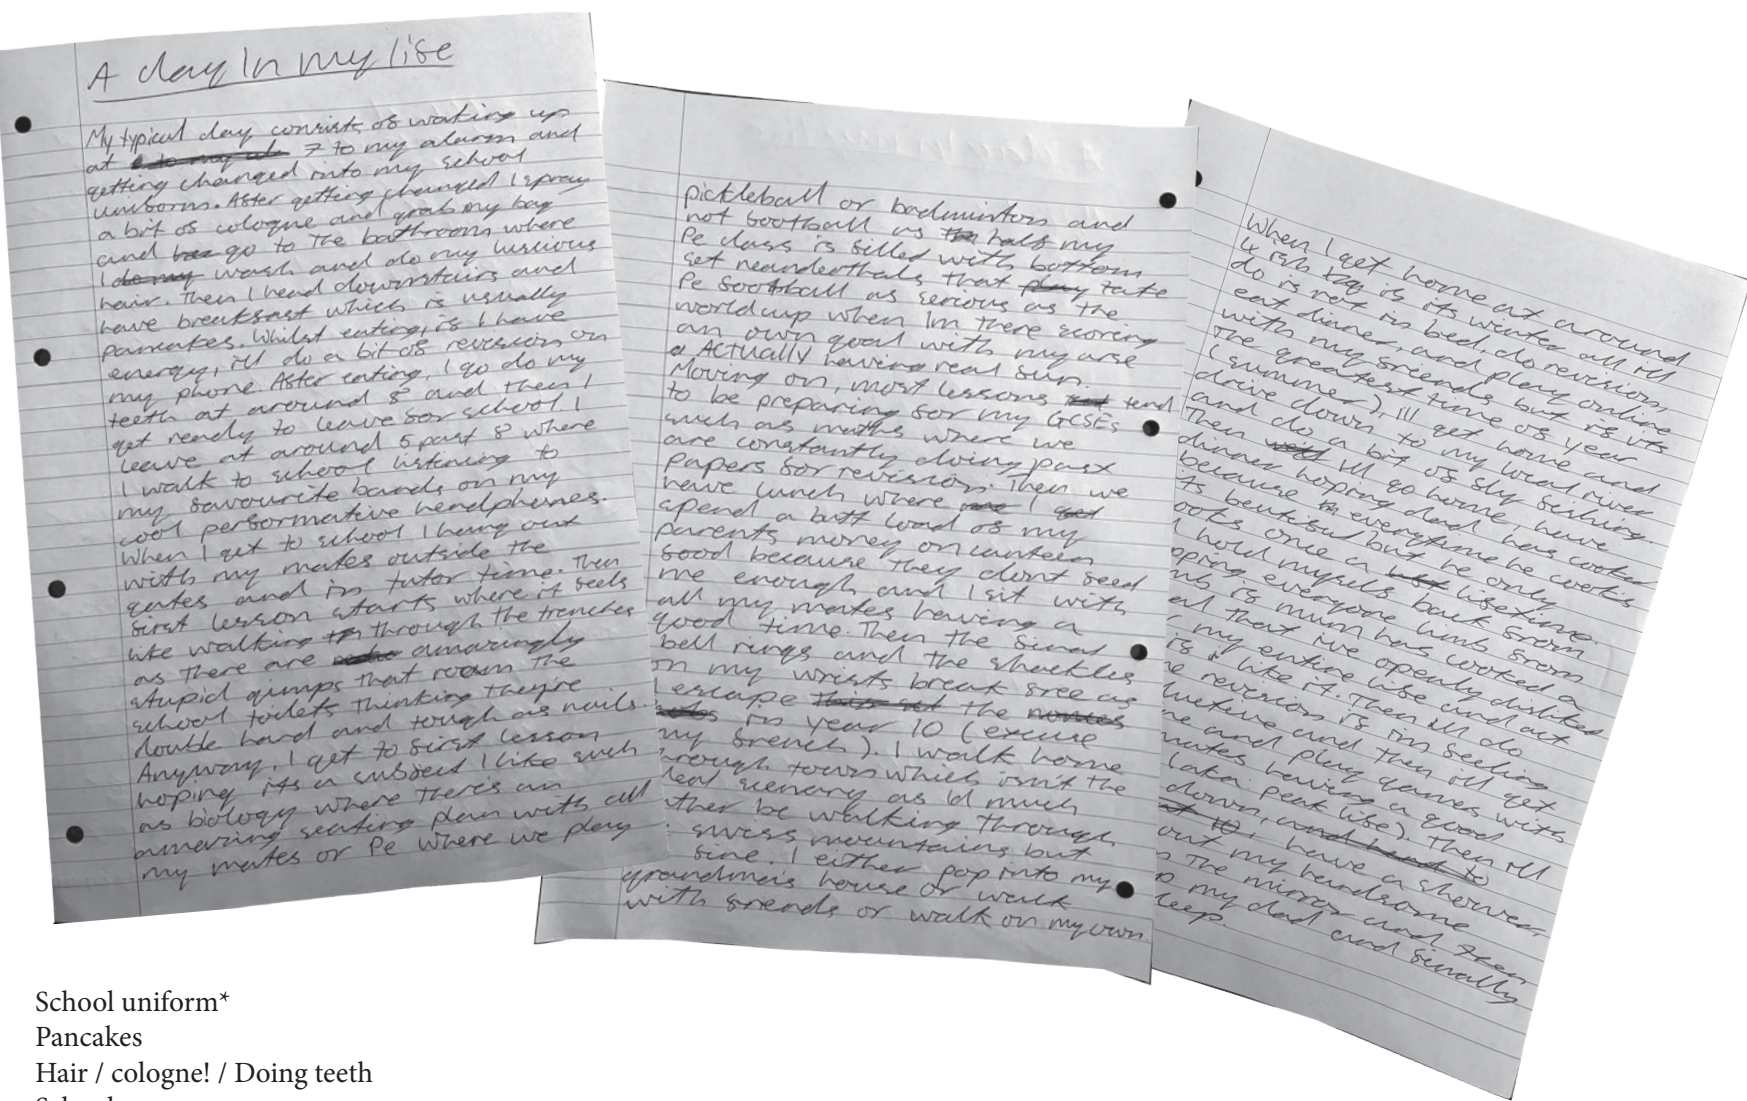 A day In my life
My typical day consists of waking up
at 7 to my alarm and
getting changed into my school
uniform. After getting changed I spray
a bit of cologne and grab my bag
and go to the bathroom where
I wash and do my luscious
hair. Then I head downstairs and
have breakfast which is usually
pancakes. Whilst eating, if I have
energy, i'll do a bit of revision on
my phone. After eating, I go do my
teeth at around 8 and then I
get ready to leave for school. I
leave at around 5 past 8 where
I walk to school listening to
my favourite bands on my
cool performative headphones.
When I get to school I hang out
with my mates outside the
gates and in tutor time. Then
first lesson starts where it feels
like walking through the trenches
as there are amazingly
stupid gimps that roam the
school toilets thinking they're
double hard and tough as nails.
Anyway, I get to first lesson
hoping its a subject I like such
as biology where there's an
amazing seating plan with all
my mates or Pe where we play
pickleball or badminton and
not football as half my
Pe class is filled with bottom
set neanderthals that take
Pe football as serious as the
world cup when Im there scoring
an own goal with my arse
ACTUALLY having real fun.
Moving on, most lessons tend
to be preparing for my GCSEs
such as maths where we
are constantly doing past
papers for revision. Then we
have lunch where I
spend a butt load of my
parents money on canteen
food because they dont feed
me enough and I sit with
all my mates having a
good time. Then the final
bell rings and the shackles
on my wrists break free as
I escape the
in year 10 (excuse
my french). I walk home
through town which isn't the
scenary as Id much
be walking through
swiss mountains but
fine. I either pop into my
grandma's house or walk
with friends or walk on my own.
When I get home at around
4 ish if its winter all ill
do is rot in bed, do revision,
eat dinner, and play online
with my friends but if its
the greatest time of year
(summer), Ill get home and
drive down to my local river
and do a bit of fly fishing
Then Ill go home, have
dinner hoping dad has cooked
because everytime he cooks
its beautiful but he only
cooks once a lifetime.
I hold myself back from
everyone limb from
limb if mum has cooked a
that i've openly disliked
my entire life and act
if i like it. Then Ill do
revision if im feeling
and then ill get
and play games with
mates having a good
(aka peak life). Then ill
down, have a shower,
my handsome
the mirror and then
my dad and finally
sleep.
School uniform*
Pancakes
Hair / cologne! / Doing teeth